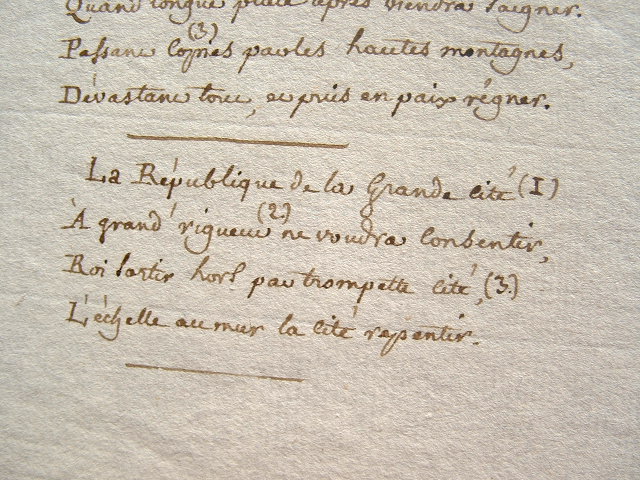 Quand longue plaie après viendra saigner.
Passant Copies (3) par les hautes montagnes,
Dévastant tout, et puis en paix régner.
La République de la Grande Cité (1)
À grand' rigueur (2) ne voudra Consentir,
Roi Sortir hors par trompette Cité, (3.)
L'échelle au mur la Cité repentir.